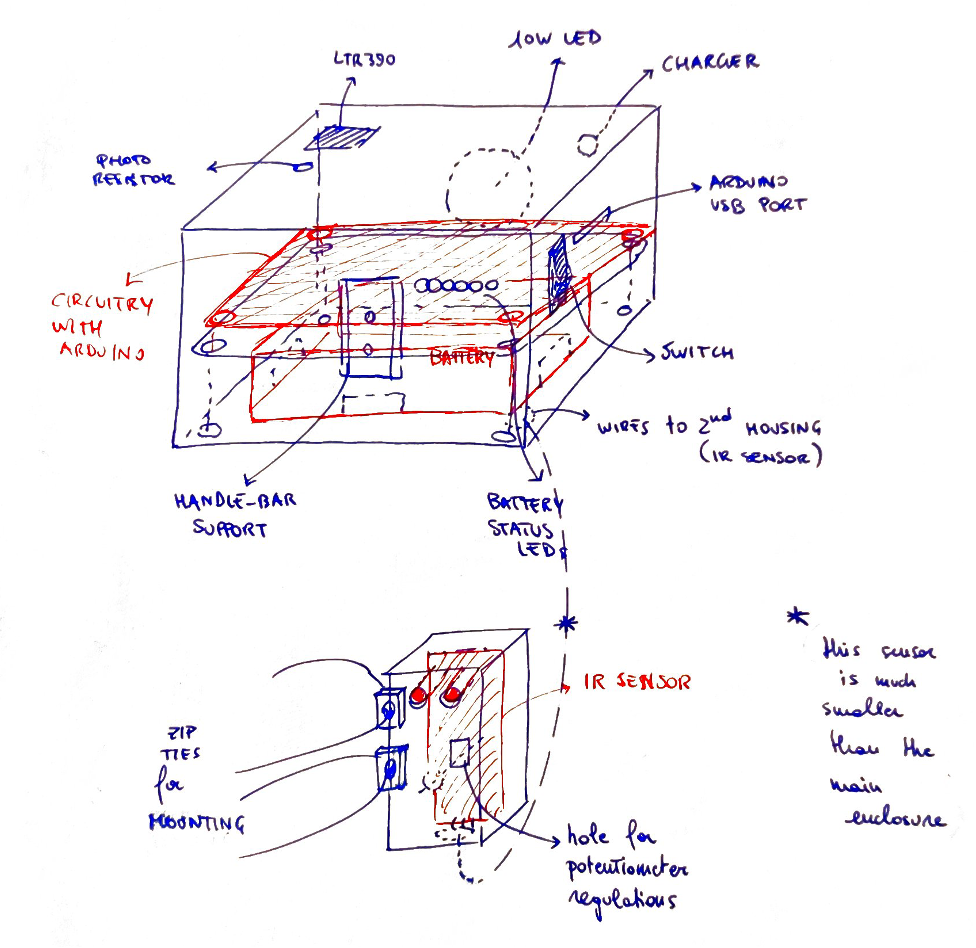 10W LED
LTR390
CHARGER
PHOTO
RESISTOR
ARDUINO
USB PORT
CIRCUITRY
WITH
ARDUINO
BATTERY
SWITCH
WIRES to 2nd HOUSING
(IR SENSOR)
HANDLE-BAR
SUPPORT
BATTERY
STATUS
LEDs
*
*
this sensor
is much
smaller
than the
main
enclosure
IR SENSOR
ZIP
TIES
for
MOUNTING
hole for
potentiometer
regulations